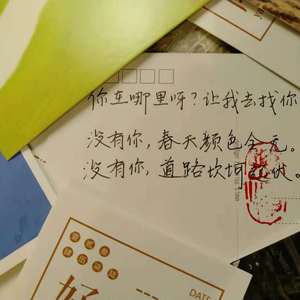 你在哪里呀？让我去找你
没有你，春天颜色全无。
没有你，道路坎坷起伏。
DATE
好